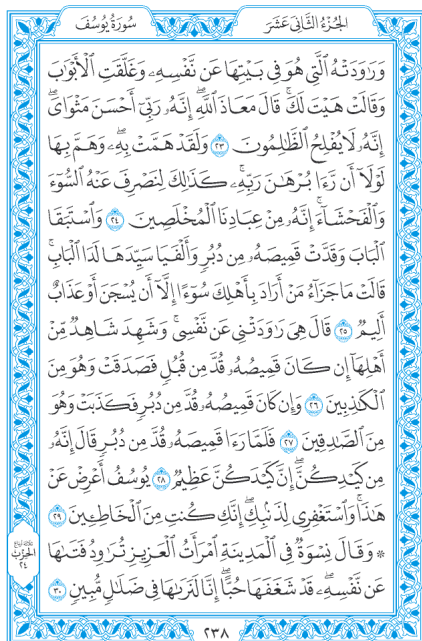 الجُزْءُ الثَّانِي عَشَرَ
سُورَةُ يُوسُفَ
وَرَٰوَدَتْهُ ٱلَّتِى هُوَ فِى بَيْتِهَا عَن نَّفْسِهِۦ وَغَلَّقَتِ ٱلْأَبْوَٰبَ
وَقَالَتْ هَيْتَ لَكَۚ قَالَ مَعَاذَ ٱللَّهِۖ إِنَّهُۥ رَبِّىٓ أَحْسَنَ مَثْوَاىَۖ
إِنَّهُۥ لَا يُفْلِحُ ٱلظَّٰلِمُونَ ٢٣ وَلَقَدْ هَمَّتْ بِهِۦۖ وَهَمَّ بِهَا
لَوْلَآ أَن رَّءَا بُرْهَٰنَ رَبِّهِۦۚ كَذَٰلِكَ لِنَصْرِفَ عَنْهُ ٱلسُّوٓءَ
وَٱلْفَحْشَآءَۚ إِنَّهُۥ مِنْ عِبَادِنَا ٱلْمُخْلَصِينَ ٢٤ وَٱسْتَبَقَا
ٱلْبَابَ وَقَدَّتْ قَمِيصَهُۥ مِن دُبُرٍ وَأَلْفَيَا سَيِّدَهَا لَدَا ٱلْبَابِۚ
قَالَتْ مَا جَزَآءُ مَنْ أَرَادَ بِأَهْلِكَ سُوٓءًا إِلَّآ أَن يُسْجَنَ أَوْ عَذَابٌ
أَلِيمٌ ٢٥ قَالَ هِىَ رَٰوَدَتْنِى عَن نَّفْسِىۚ وَشَهِدَ شَاهِدٌ مِّنْ
أَهْلِهَآ إِن كَانَ قَمِيصُهُۥ قُدَّ مِن قُبُلٍ فَصَدَقَتْ وَهُوَ مِنَ
ٱلْكَٰذِبِينَ ٢٦ وَإِن كَانَ قَمِيصُهُۥ قُدَّ مِن دُبُرٍ فَكَذَبَتْ وَهُوَ
مِنَ ٱلصَّٰدِقِينَ ٢٧ فَلَمَّا رَءَا قَمِيصَهُۥ قُدَّ مِن دُبُرٍ قَالَ إِنَّهُۥ
مِن كَيْدِكُنَّۖ إِنَّ كَيْدَكُنَّ عَظِيمٌ ٢٨ يُوسُفُ أَعْرِضْ عَنْ
هَٰذَاۚ وَٱسْتَغْفِرِى لِذَنۢبِكِۖ إِنَّكِ كُنتِ مِنَ ٱلْخَاطِـِٔينَ ٢٩
۞ وَقَالَ نِسْوَةٌ فِى ٱلْمَدِينَةِ ٱمْرَأَتُ ٱلْعَزِيزِ تُرَٰوِدُ فَتَىٰهَا
عَن نَّفْسِهِۦۖ قَدْ شَغَفَهَا حُبًّاۖ إِنَّا لَنَرَىٰهَا فِى ضَلَٰلٍ مُّبِينٍ ٣٠
الحِزْب
٢٤
٢٣٨